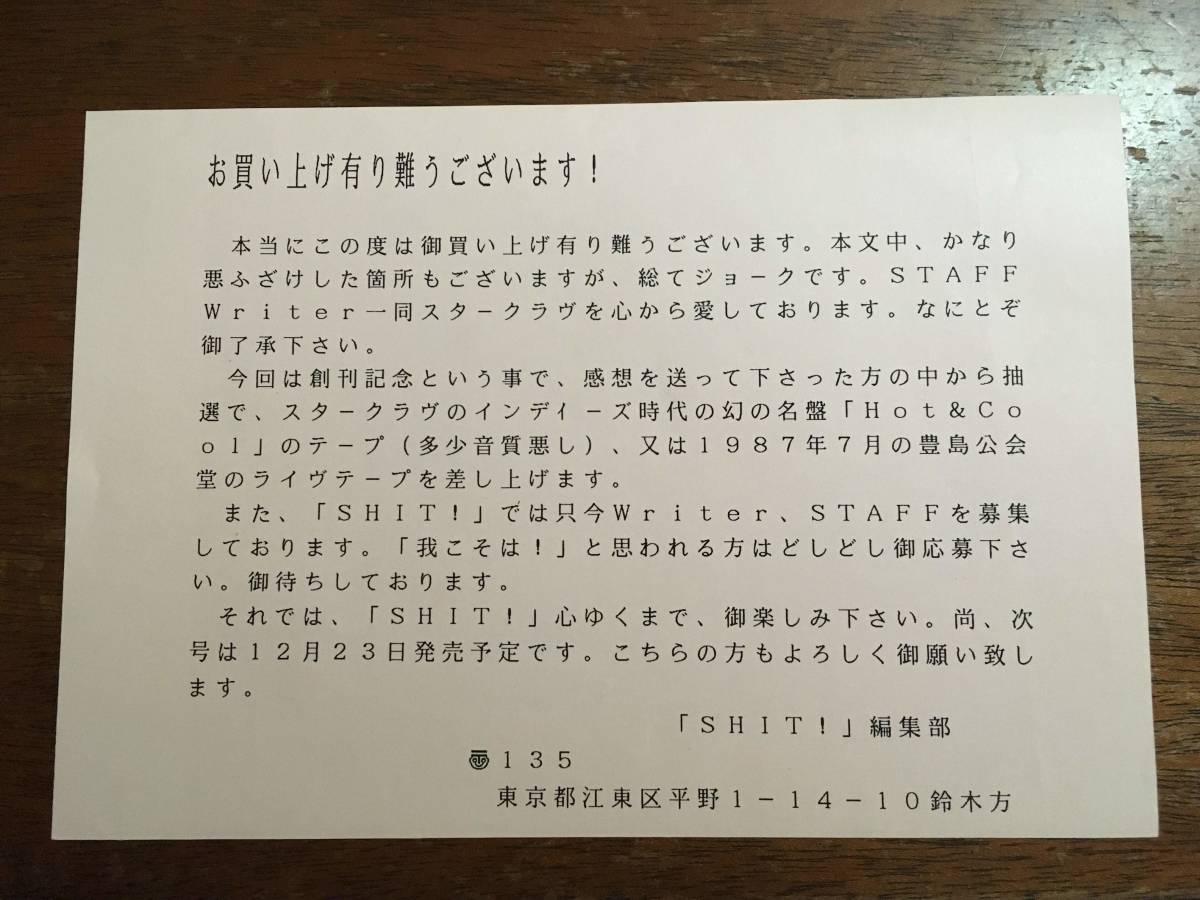 お買い上げ有り難うございます！
本当にこの度は御買い上げ有り難うございます。本文中、かなり
悪ふざけした箇所もございますが、総てジョークです。ＳＴＡＦＦ
Ｗｒｉｔｅｒ一同スタークラヴを心から愛しております。なにとぞ
御了承下さい。
今回は創刊記念という事で、感想を送って下さった方の中から抽
選で、スタークラヴのインディーズ時代の幻の名盤「Ｈｏｔ＆Ｃｏ
ｏｌ」のテープ（多少音質悪し）、又は１９８７年７月の豊島公会
堂のライヴテープを差し上げます。
また、「ＳＨＩＴ！」では只今Ｗｒｉｔｅｒ、ＳＴＡＦＦを募集
しております。「我こそは！」と思われる方はどしどし御応募下さ
い。御待ちしております。
それでは、「ＳＨＩＴ！」心ゆくまで、御楽しみ下さい。尚、次
号は１２月２３日発売予定です。こちらの方もよろしく御願い致し
ます。
「ＳＨＩＴ！」編集部
〠１３５
東京都江東区平野１－１４－１０鈴木方